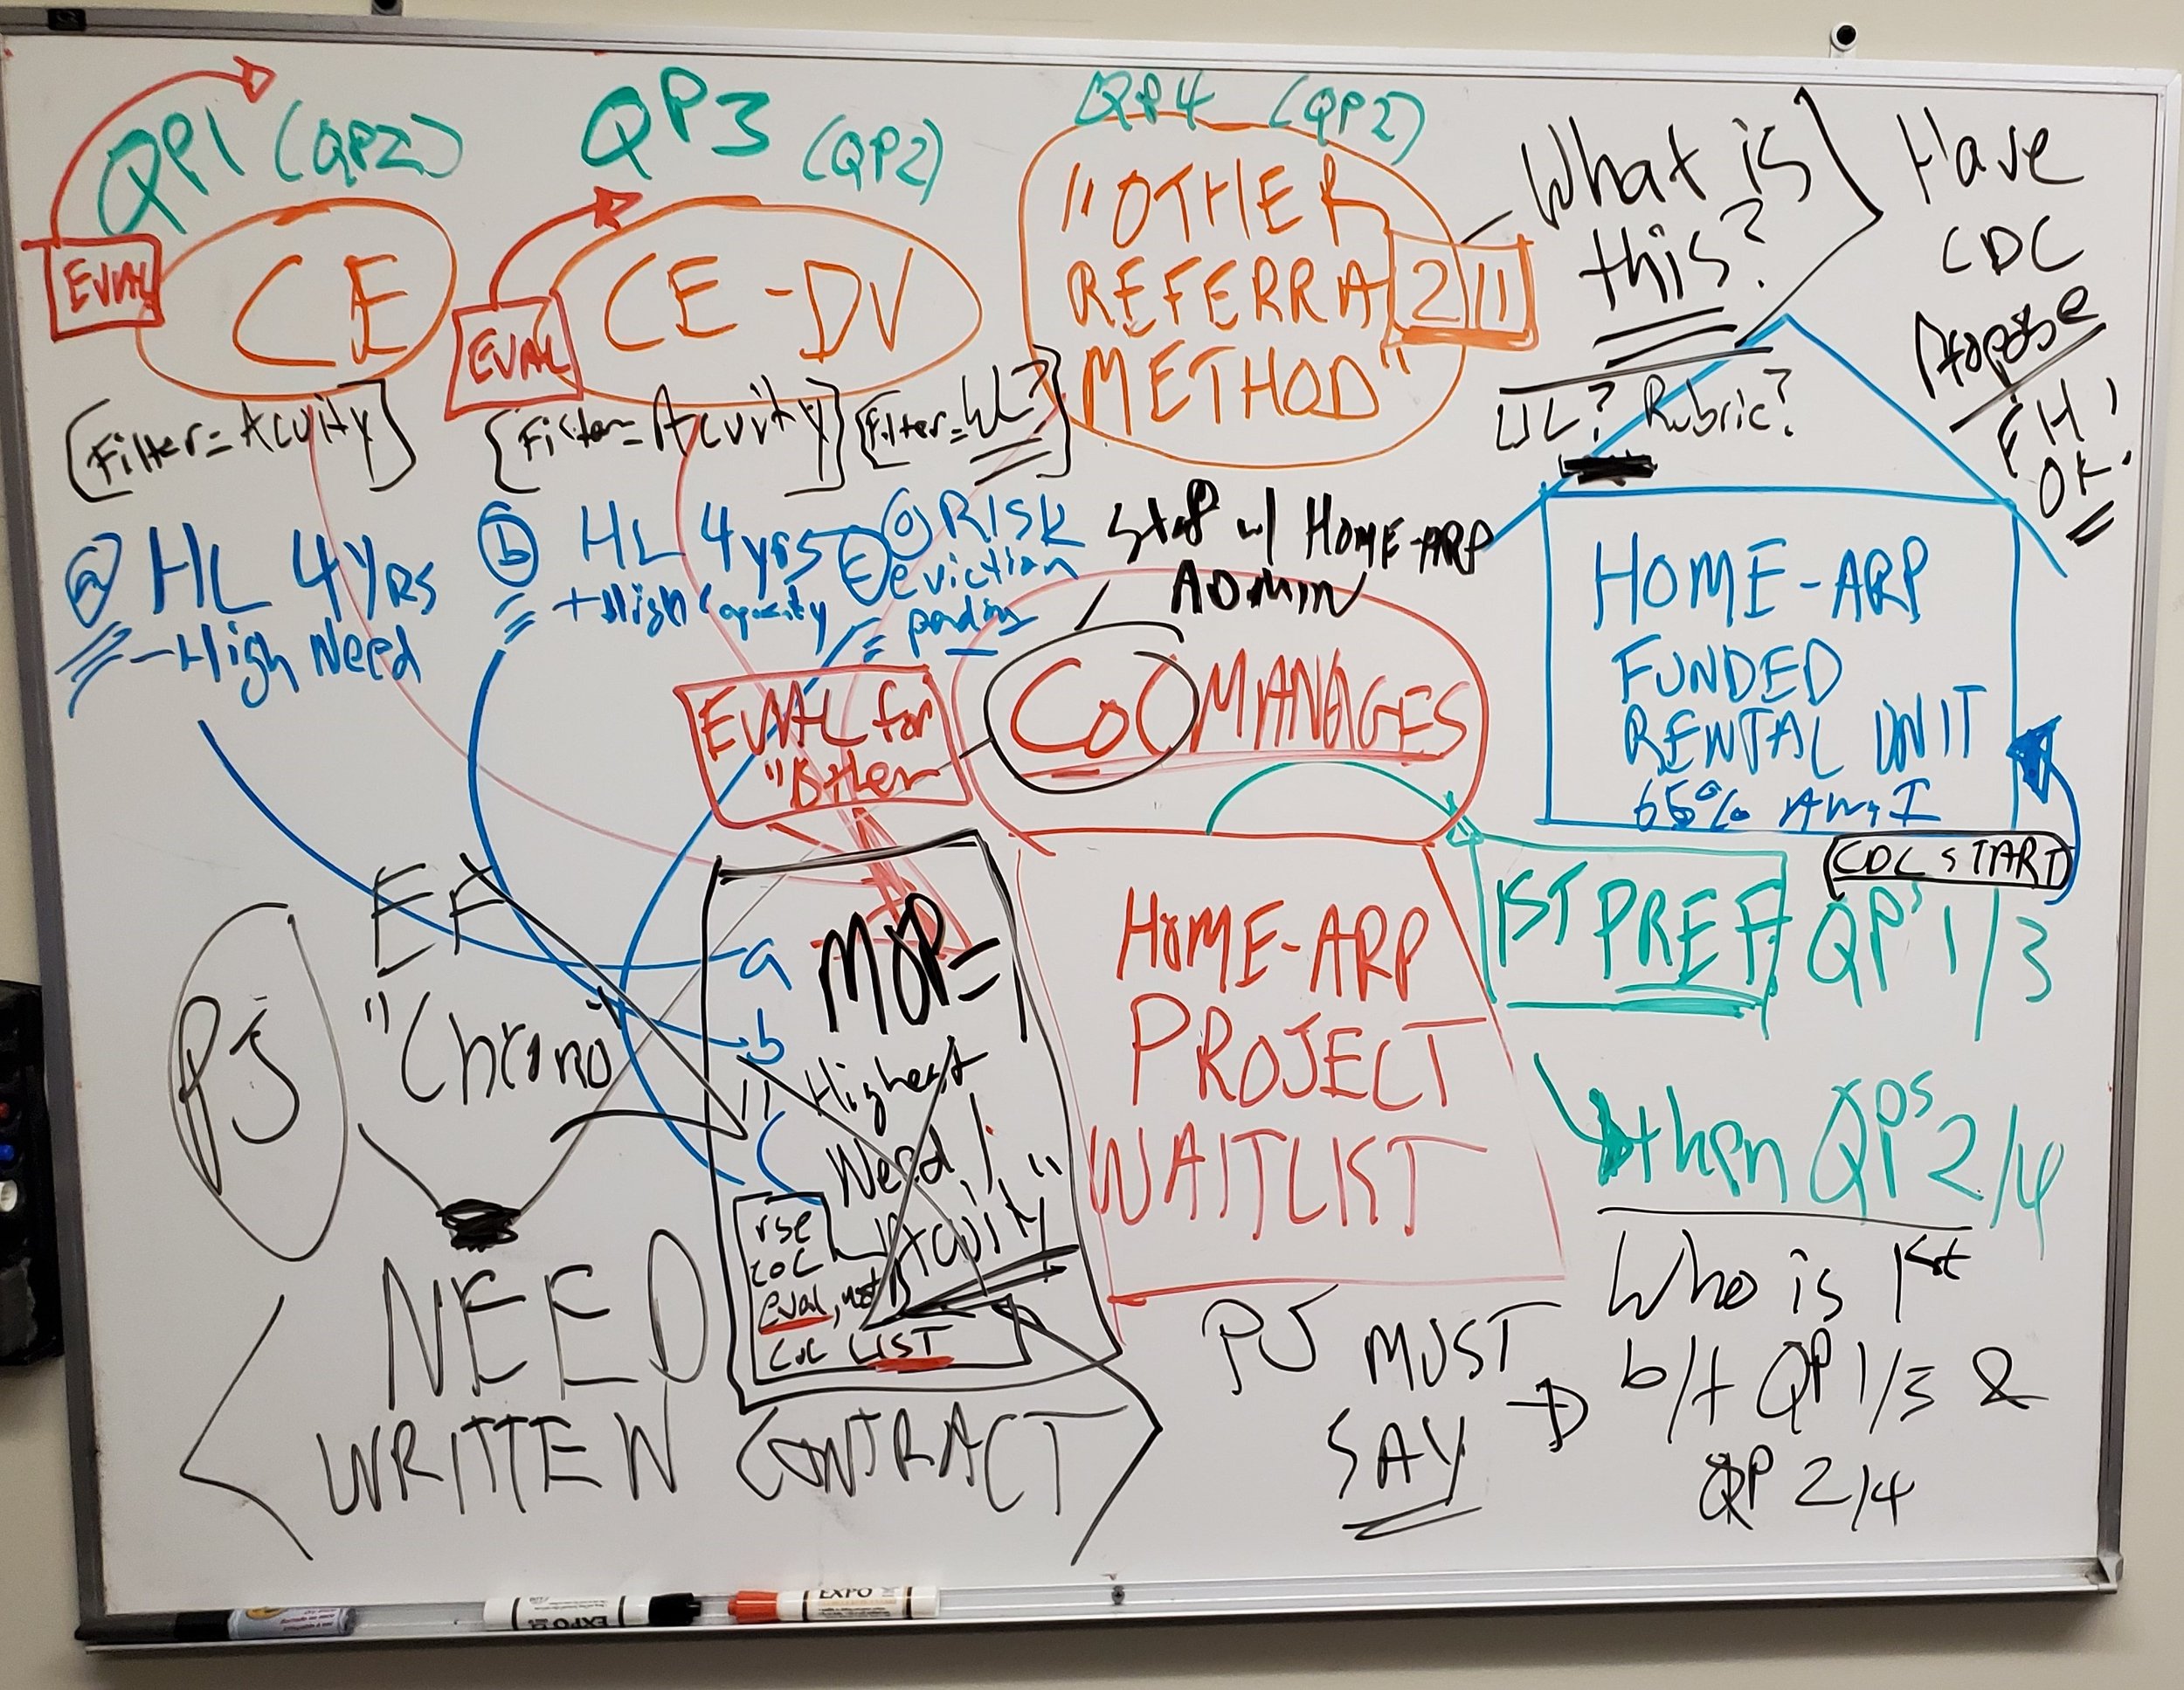 QP1 (QP2)
EVAL
CE
[Filter = Acuity]
a HL 4 YRS
- High Need
QP3 (QP2)
EVAL
CE - DV
[Filter = Acuity]
[Filter = WL?]
b HL 4 yrs
+ High Capacity
C RISK
eviction
pending
QP4 (QP2)
"OTHER
REFERRAL
METHOD"
211
What is
this?
WL? Rubric?
Have
CDC
Propose
EH
OK!
Staff w/ HOME-ARP
ADMIN
CoC MANAGES
EVAL for
"Other
HOME-ARP
FUNDED
RENTAL UNIT
65% AMI
CDC START
HOME-ARP
PROJECT
WAITLIST
1ST PREF QP's 1/3
then QPs 2/4
PJ
"Chrono"
a
b
C
MOP =
"Highest
Need /
Acuity"
CoC
eval, not
CoC LIST
NEED
WRITTEN CONTRACT
PJ MUST
SAY →
Who is 1st
b/t QP 1/3 &
QP 2/4
EXPO
EXPO